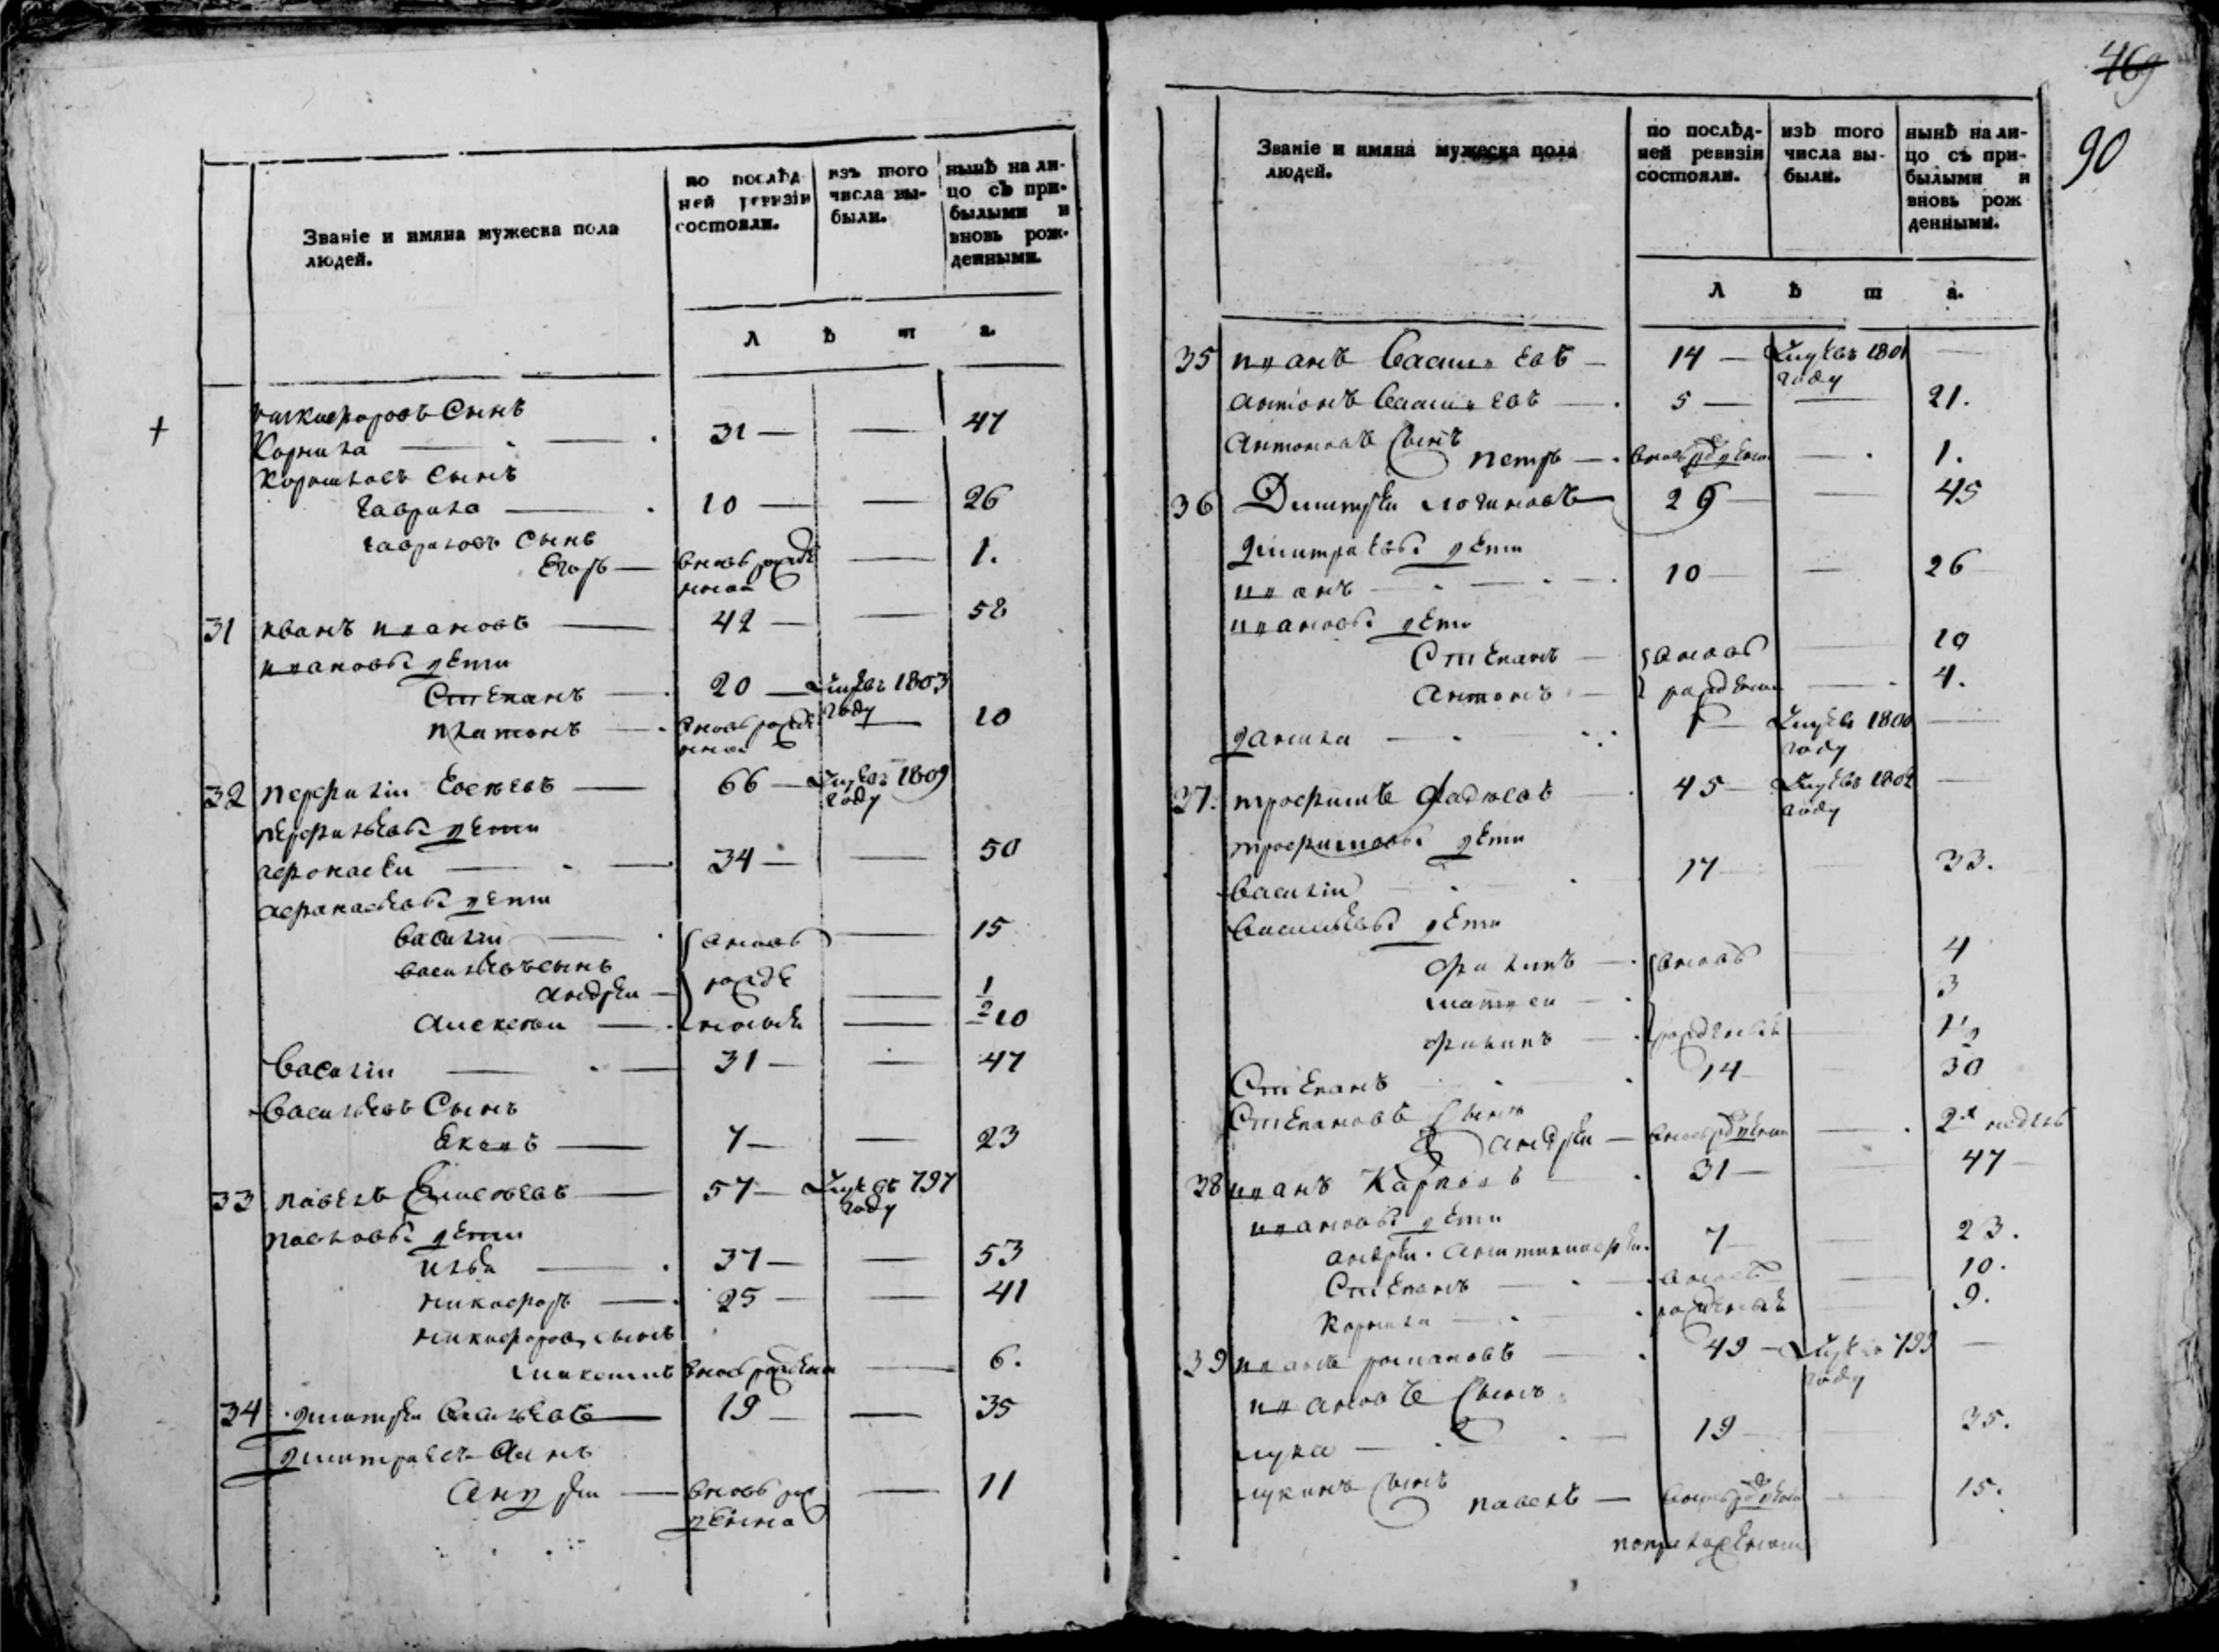 Званіе и имяна мужеска пола
людей.
по послѣд-
ней ревизіи
состояли.
изъ того
числа вы-
были.
нынѣ на ли-
цо съ при-
былыми и
вновь рож-
денными.
л ѣ т а.
никифоровъ Сынъ
Корнила 31 47
Корниловъ Сынъ
Гаврила 10 26
гавриловъ Сынъ
Егоръ вновь рожде 1.
нной
31 иванъ ивановъ 42 58
ивановы дети
Степанъ 20 1803
году
платонъ вновь рожде 10
нной
32 перфилiи Евсѣевъ 66 1809
году
перфильевы дети
афонасеи 34 50
афанасьевы дети
василiи вновь 15
васильевъ сынъ
андреи рожде 1/2
Алексеи нныя 10
василiи 31 47
васильевъ Сынъ
7 23
33 павелъ 57 797
году
павловы дети
илья 37 53
никифоръ 25 41
никифоровъ сынъ
максимъ вновь рожденнои 6.
34 дмитреи васильевъ 19 35
дмитриевъ Сынъ
Андреи вновь рож 11
денно
469
90
Званіе и имяна мужеска пола
людей.
по послѣд-
ней ревизіи
состояли.
изъ того
числа вы-
были.
нынѣ на ли-
цо съ при-
былыми и
вновь рож
денными.
л ѣ т а.
35 иванъ 14 1801
году
антонъ 5 21.
антоновъ Сынъ
петръ вновь рожденнои 1.
36 Дмитреи логиновъ 29 45
дмитриевы дети
иванъ 10 26
ивановы дети
Степанъ вновь 10
Антонъ рожденныи 4.
данила 1 1800
году
37. трофимъ фадѣевъ 45 1802
году
трофимовы дети
василiи 17 33.
васильевы дети
филипъ вновь 4
матвеи 3
филипъ рожденныя 1 1/2
Степанъ 14 30
Степановъ Сынъ
андреи вновь рожденнои 2х недель
38 иванъ Карповъ 31 47
ивановы дети
андреи 7 23.
Степанъ вновь 10.
Корнила рожденныя 9.
39 иванъ романовъ 49 799
году
ивановъ Сынъ
лука 19 35.
лукинъ Сынъ
павелъ вновь рожденнои 15.